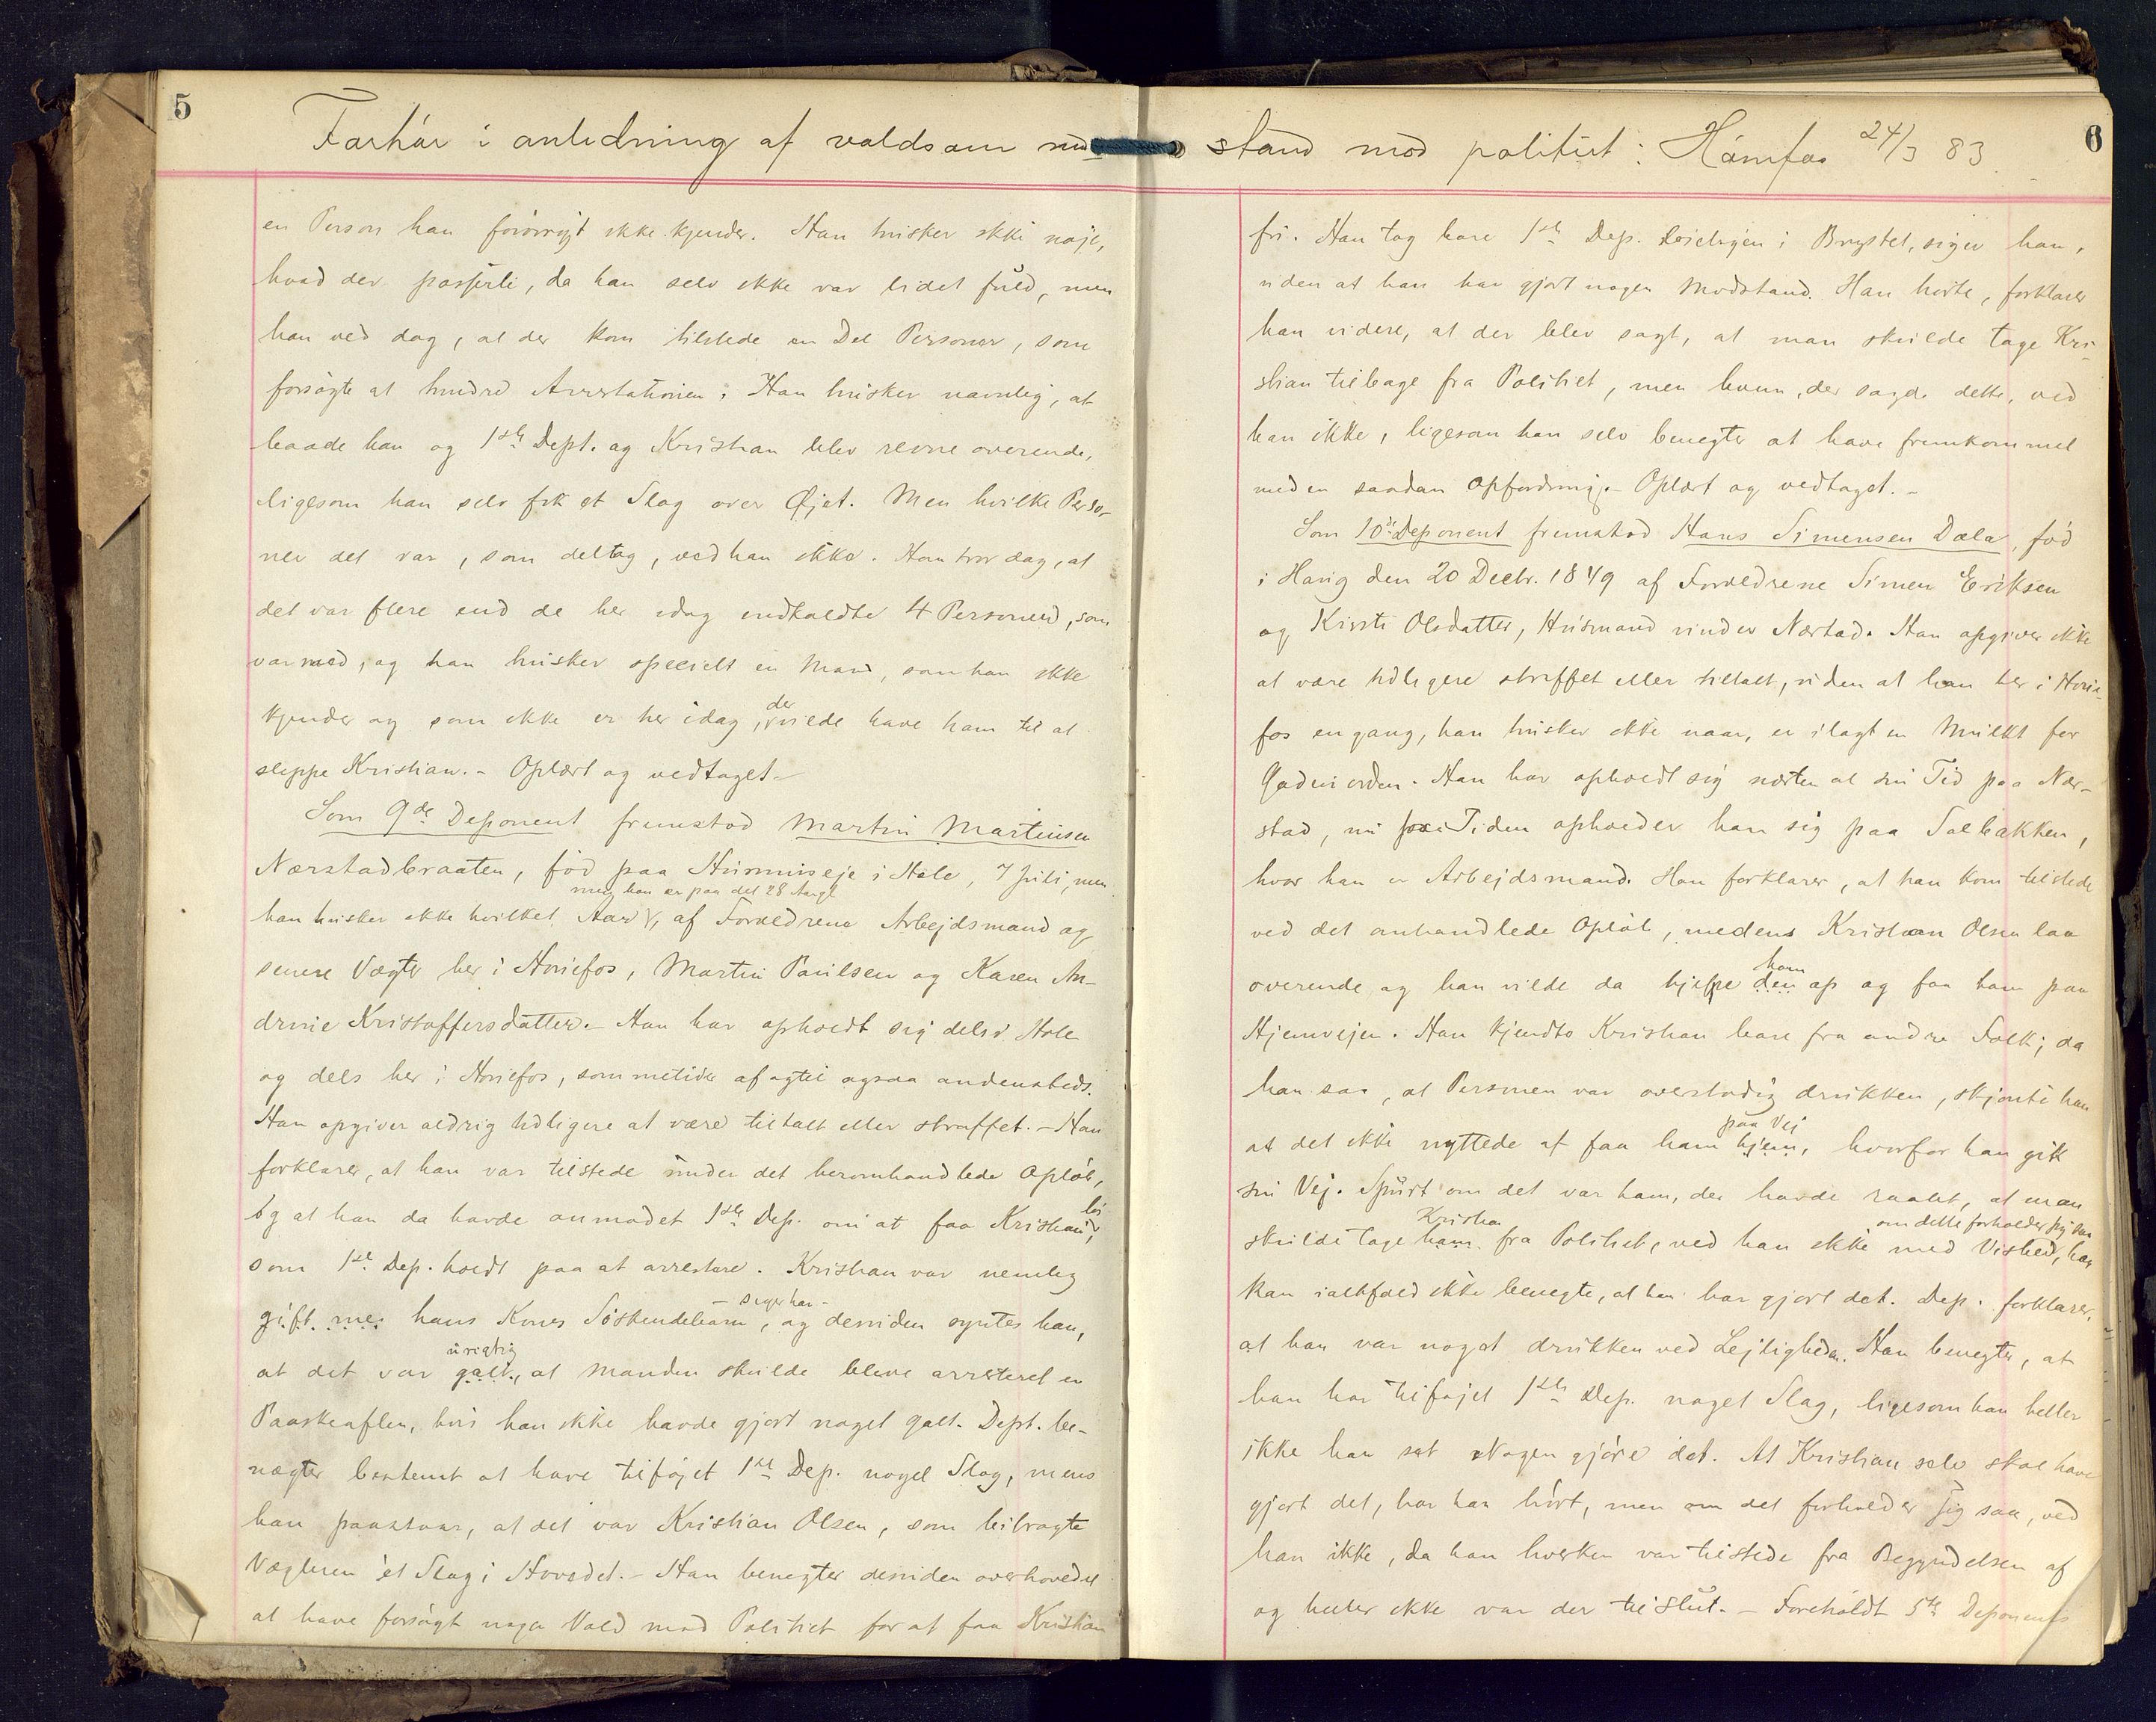 5
Forhør i anledning af voldsom mod
en Person han forøvrigt ikke kjender. Han husker ikke nøje,
hvad der passerte, da han selv ikke var lidet fuld, men
han ved dog, at der kom tilstede en Del Personer, som
forsøgte at hindre Arrestationen. Han husker navnlig, at
baade han og 1ste Dept. og Kristian blev revne overende,
ligesom han selv fik et Slag over Øjet. Men hvilke Perso-
ner det var, som deltog, ved han ikke. Han tror dog, at
det var flere end de her idag indkaldte 4 Personer, som
var med, og han husker specielt en Mand, som han ikke
kjender og som ikke er her idag, der vilde have ham til at
slippe Kristian. - Oplæst og vedtaget. -
Som 9de Deponent fremstod Martin Martinsen
Nærstadbraaten, fød paa Husmuseje i Hole, 7 Juli, men
men han er paa det 28 Aarge
han husker ikke hvilket Aar, af Forældrene Arbejdsmand og
senere Vægter her i Hønefos, Martin Paulsen og Karen An-
drine Kristoffersdatter. - Han har opholdt sig dels i Hole
og dels her i Hønefos, sommetider af og til ogsaa andensteds.
Han opgiver aldrig tidligere at være tiltalt eller straffet. - Han
forklarer, at han var tilstede under det heromhandlede Opløb,
og at han da havde anmodet 1ste Dep. om at faa Kristian løs,
som 1ste Dep. holdt paa at arrestere. Kristian var nemlig
- siger han -
gift med hans Kones Søskendebarn, og desuden syntes han,
urigtig
at det var galt, at Manden skulde blive arresteret en
Paaskeaften, hvis han ikke havde gjort noget galt. Dept. be-
nægter bestemt at have tilføjet 1ste Dep. noget Slag, mens
han paastaar, at det var Kristian Olsen, som bibragte
Vægteren et Slag i Hovedet. - Han benegter desuden overhovedet
at have forsøgt nogen Vold mod Politiet for at faa Kristian
6
stand mod politiet: Hønefos 24/3 83
fri. Han tog bare 1ste Dep. i Brystet, siger han,
uden at han har gjort nogen Modstand. Han hørte, forklarer
han videre, at der blev sagt, at man skulde tage Kri-
stian tilbage fra Politiet, men hvem, der sagde dette, ved
han ikke, ligesom han selv benegter at have fremkommet
med en saadan Opfordring. - Oplæst og vedtaget. -
Som 10de Deponent fremstod Hans Simensen Dæla, fød
i Haug den 20 Decbr. 1849 af Forældrene Simen Eriksen
og Kirsti Olsdatter, Husmand under Nærstad. Han opgiver ikke
at være tidligere straffet eller tiltalt, uden at han her i Høne-
fos engang, han husker ikke naar, er ilagt en Mulkt for
Gadeuorden. Han har opholdt sig næsten al sin Tid paa Nær-
stad, nu for Tiden opholder han sig paa Solbakken,
hvor han er Arbejdsmand. Han forklarer, at han kom tilstede
ved det omhandlede Opløb, medens Kristian Olsen laa
ham
overende og han vilde da hjelpe den op og faa ham paa
Hjemvejen. Han kjendte Kristian bare fra andre Folk; da
han saa, at Personen var overstadig drukken, skjønte han
paa Vej
at det ikke nyttede at faa ham hjem, hvorfor han gik
sin Vej. Spurt om det var ham, der havde raabt, at man
Kristian om dette forholder sig saa
skulde tage ham fra Politiet, ved han ikke med Vished, han
kan ialfald ikke benegte, at han har gjort det. Dep. forklarer,
at han var noget drukken ved Lejligheden. Han benegter, at
han har tilføjet 1ste Dep. noget Slag, ligesom han heller
ikke har set Nogen gjøre det. At Kristian selv skal have
gjort det, har han hørt, men om det forholder sig saa, ved
han ikke, da han hverken var tilstede fra Begyndelsen af
og heller ikke var der tilslut. - Foreholdt 5te Deponents